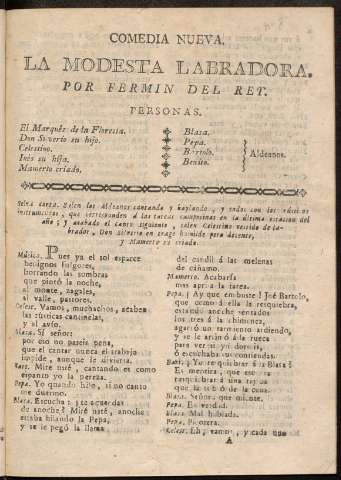 COMEDIA NUEVA.
LA MODESTA LABRADORA.
POR FERMIN DEL REY.
PERSONAS.
El Marqués de la Floresta.
Don Silverio su hijo.
Celestino.
Inés su hija.
Mamerto criado.
Blasa.
Pepa.
Bartolo.
Benito.
Aldeanos.
Selva corta. Salen los Aldeanos cantando y baylando, y todos con los rústicos
instrumentos, que corresponden á las tareas campesinas en la última estacion del
año; y acabado el canto siguiente, salen Celestino vestido de la-
brador, Don Silverio en trage humilde pero decente,
y Mamerto su criado.
Música. Pues ya el sol esparce
benignos fulgores,
borrando las sombras
que pintó la noche,
al monte, zagales,
al valle, pastores.
Celest. Vamos, muchachos, acaben
las rústicas cantinelas,
y al avío.
Blasa. Sí señor:
por eso no pareis pena,
que el cantar nunca el trabajo
impide, aunque le divierta.
Bart. Mire usté, cantando es como
espanto yo la pereza.
Pepa. Yo quando hilo, si no canto
me duermo.
Blasa. Escucha: ¿te acuerdas
de anoche? Mire usté, anoche
estaba hilando la Pepa,
y se le pegó la llama
del candil á las melenas
de cáñamo.
Mamerto. Acabaría
mas aprisa la tarea.
Pepa. ¡Ay que embuste! José Bartolo,
que como á ella la resquiebra,
estando anoche sentados
los tres á la chimenea,
agarró un sarmiento ardiendo,
y se le arrimó á la rueca
para ver
ó escuchaba sus contiendas.
Bart. ¿Yo requiebrar á la Blasa?
Es mentira, que ese
requiebrará una
que la salió de la
Blasa. Señores, que miente.
Pepa. Es verdad.
Blasa. Mal hablada.
Pepa. Picotera.
Celest. Eh, vamos, y cada uno
A